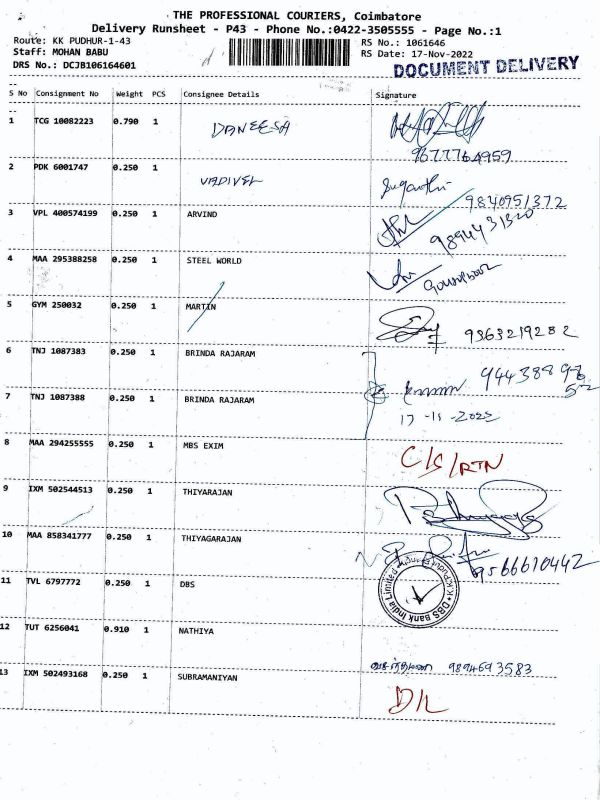 THE PROFESSIONAL COURIERS, Coimbatore
Delivery Runsheet - P43 - Phone No.:0422-3505555 - Page No.:1
Route: KK PUDHUR-1-43 RS No.: 1061646
Staff: MOHAN BABU RS Date: 17-Nov-2022
DRS No.: DCJB106164601 DOCUMENT DELIVERY
S No Consignment No Weight PCS Consignee Details Signature
1 TCG 10082223 0.790 1 DANEESA
9677764959
2 PDK 6001747 0.250 1 VADIVEL Suganthi
9840951372
3 VPL 400574199 0.250 1 ARVIND 9894431320
4 MAA 295388258 0.250 1 STEEL WORLD
5 GYM 250032 0.250 1 MARTIN 9363219282
6 TNJ 1087383 0.250 1 BRINDA RAJARAM
7 TNJ 1087388 0.250 1 BRINDA RAJARAM
17-11-2022
8 MAA 294255555 0.250 1 MBS EXIM C/S/RTN
9 IXM 502544513 0.250 1 THIYARAJAN
10 MAA 858341777 0.250 1 THIYAGARAJAN 9566610442
11 TVL 6797772 0.250 1 DBS DBS Bank India Limited
12 TUT 6256041 0.910 1 NATHIYA 9894693583
13 IXM 502493168 0.250 1 SUBRAMANIYAN D/L